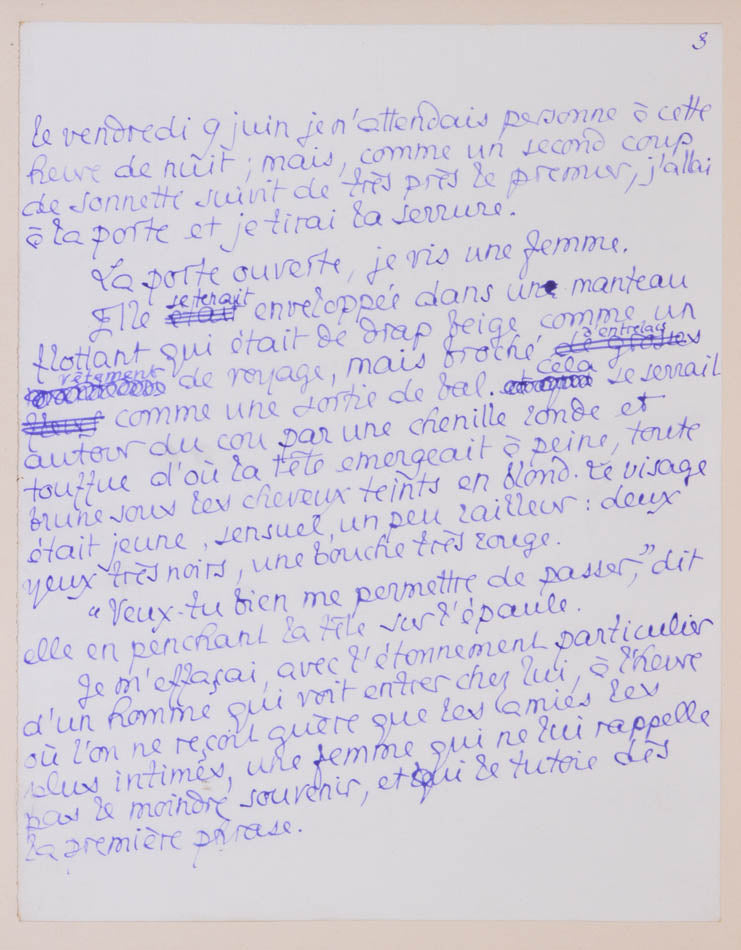 3
le vendredi 9 juin je n'attendais personne à cette
heure de nuit ; mais, comme un second coup
de sonnette suivit de très près le premier, j'allai
à la porte et je tirai la serrure.
La porte ouverte, je vis une femme.
Elle se tenait enveloppée dans un manteau
flottant qui était de drap beige comme un
vêtement de voyage, mais broché à entrelacs
comme une sortie de bal. Cela se serrait
autour du cou par une chenille ronde et
touffue d'où la tête emergeait à peine, toute
brune sous les cheveux teints en blond. Le visage
était jeune, sensuel, un peu railleur : deux
yeux très noirs, une bouche très rouge.
"Veux-tu bien me permettre de passer," dit
elle en penchant la tête sur l'épaule.
Je m'effaçai, avec l'étonnement particulier
d'un homme qui voit entrer chez lui, à l'heure
où l'on ne reçoit guère que les amies les
plus intimes, une femme qui ne lui rappelle
pas le moindre souvenir, et qui le tutoie dès
la première phrase.